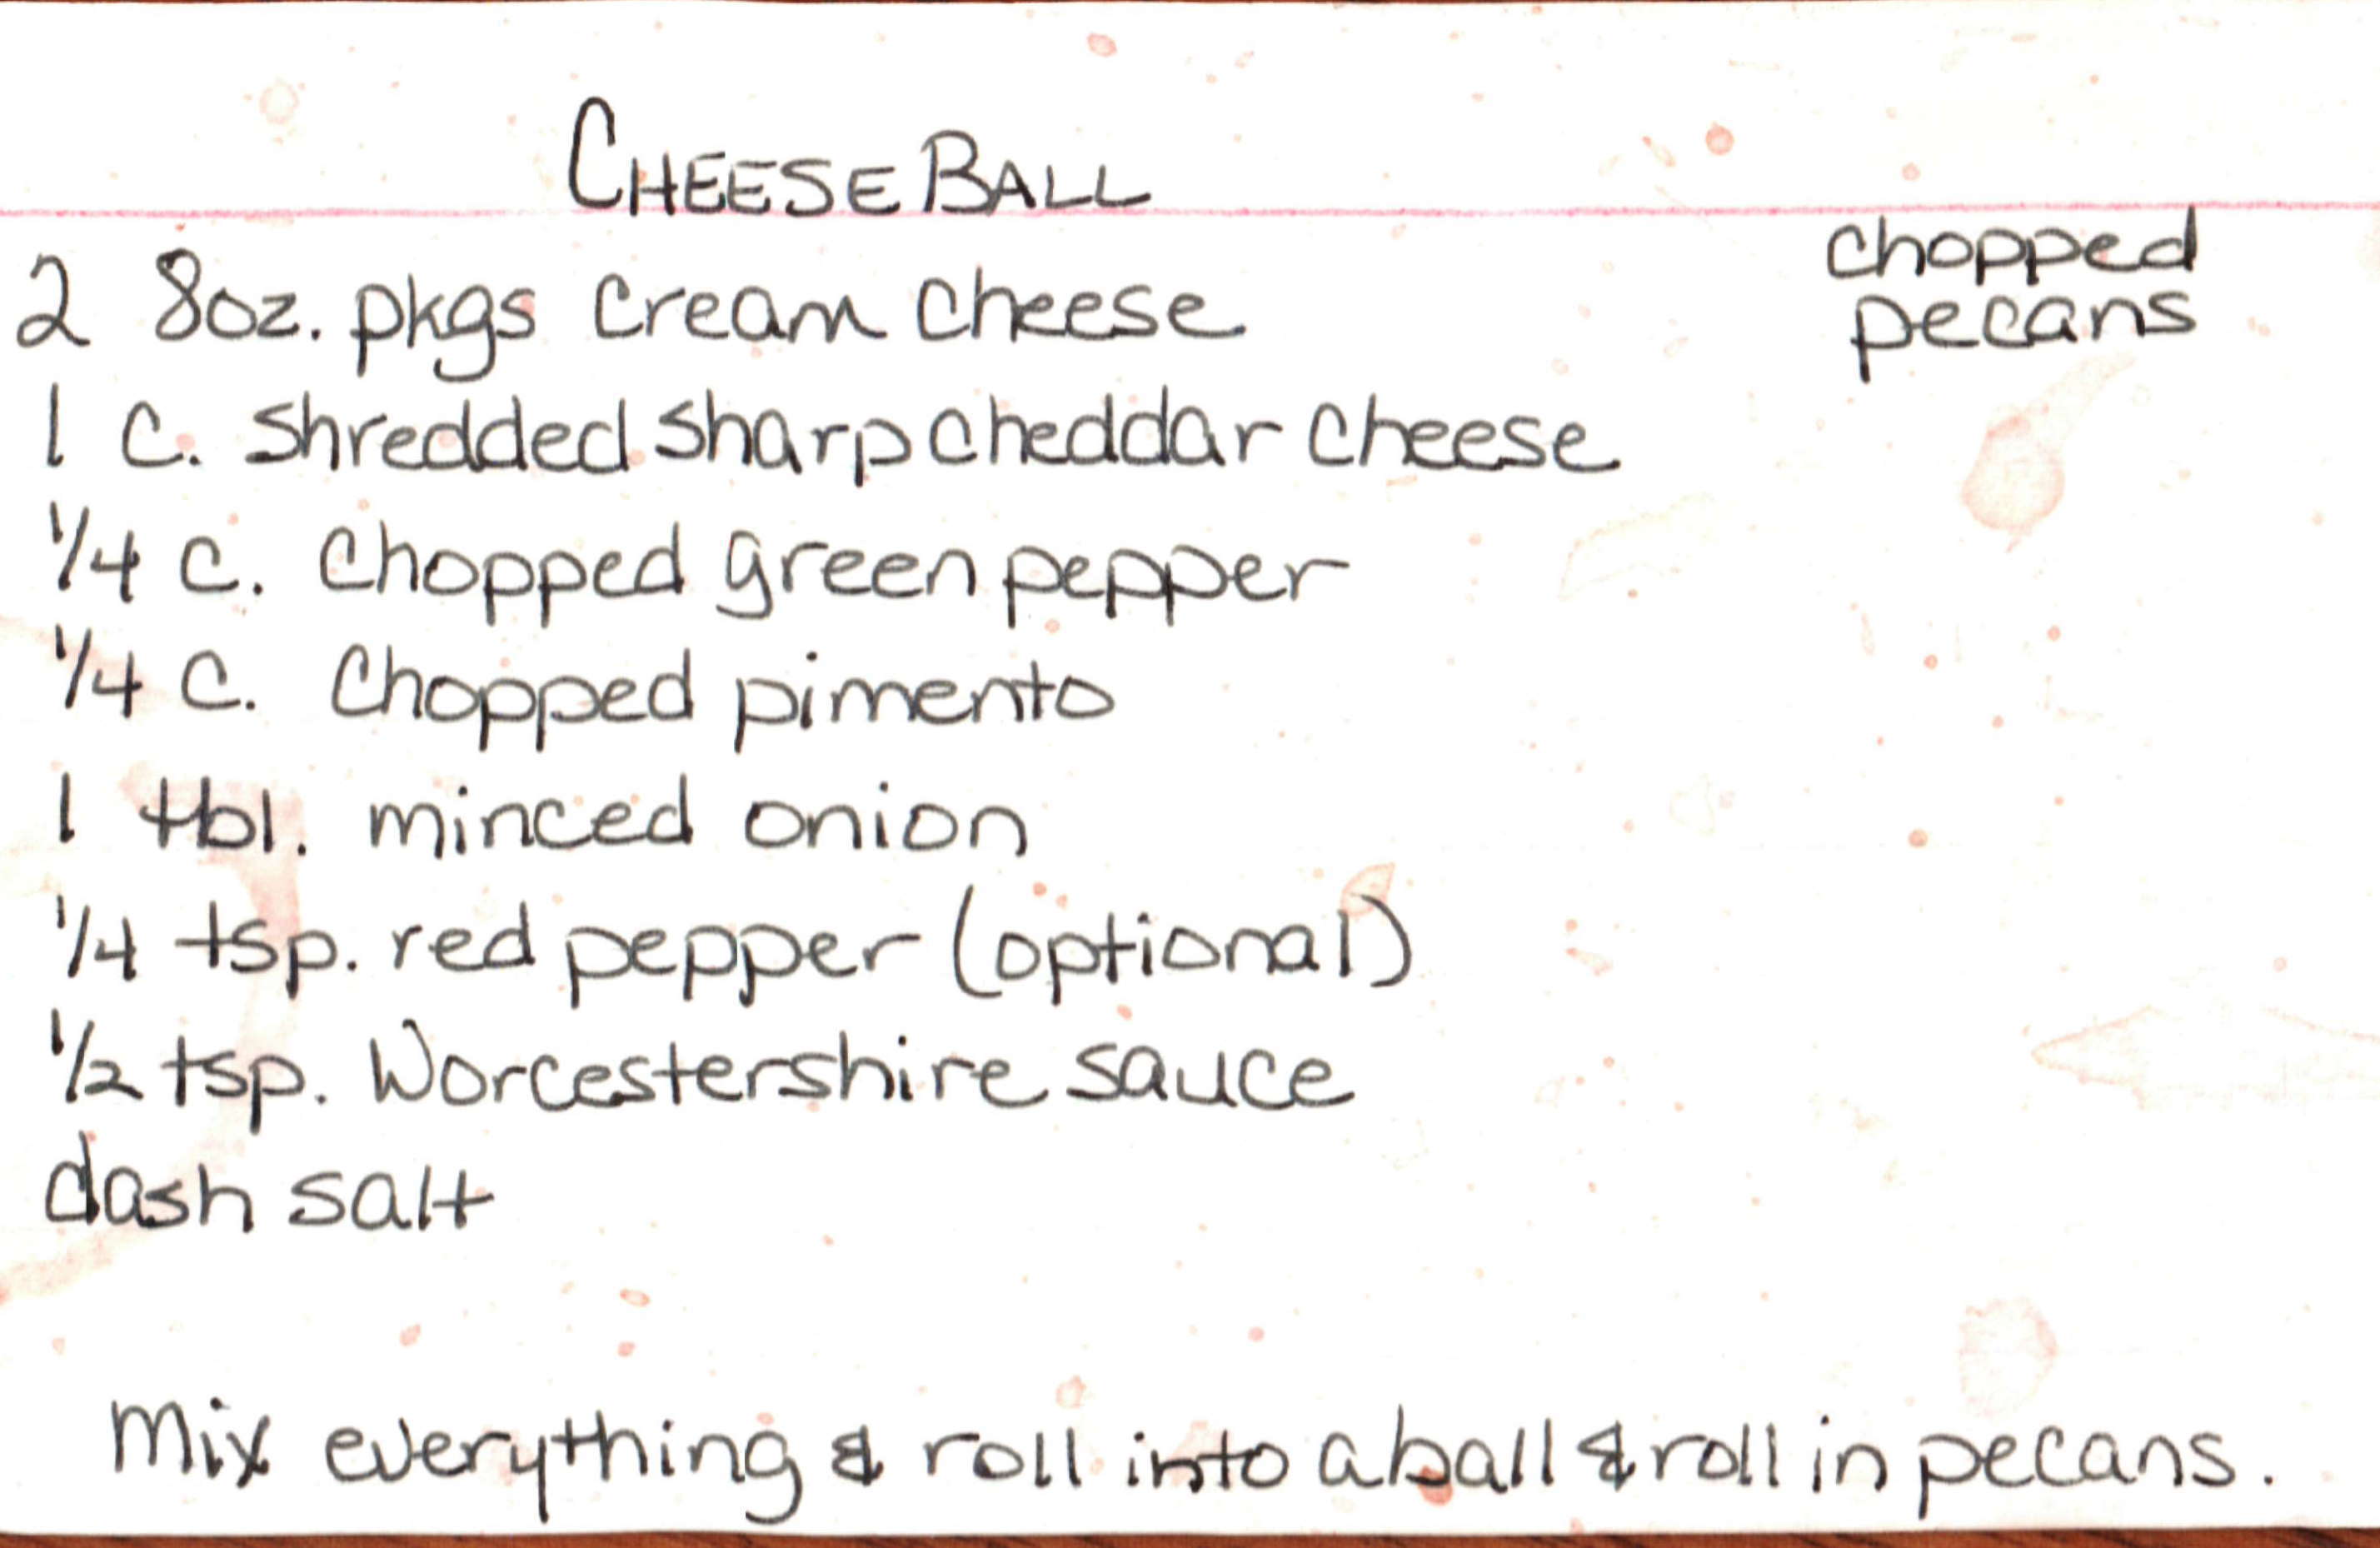 CHEESE BALL
2 8oz. pkgs cream cheese
chopped
pecans
1 C. shredded sharp cheddar cheese
1/4 C. chopped green pepper
1/4 C. chopped pimento
1 tbl. minced onion
1/4 tsp. red pepper (optional)
1/2 tsp. Worcestershire sauce
dash salt
Mix everything & roll into a ball & roll in pecans.